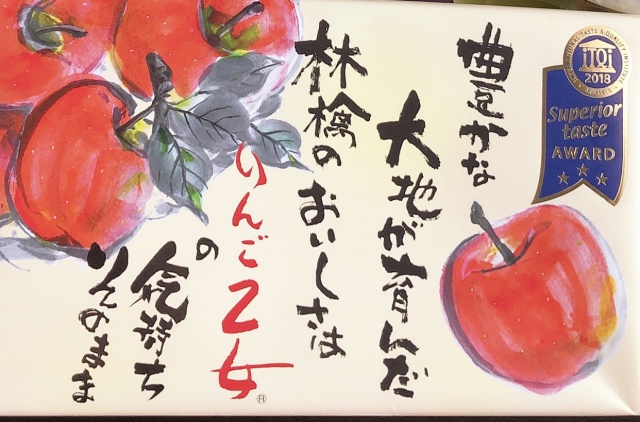 豊かな
大地が育んだ
林檎のおいしさは
りんご乙女®
の
気持ち
そのまま
INTERNATIONAL TASTE & QUALITY INSTITUTE
iTQi
2018
BRUSSELS
Superior
taste
AWARD